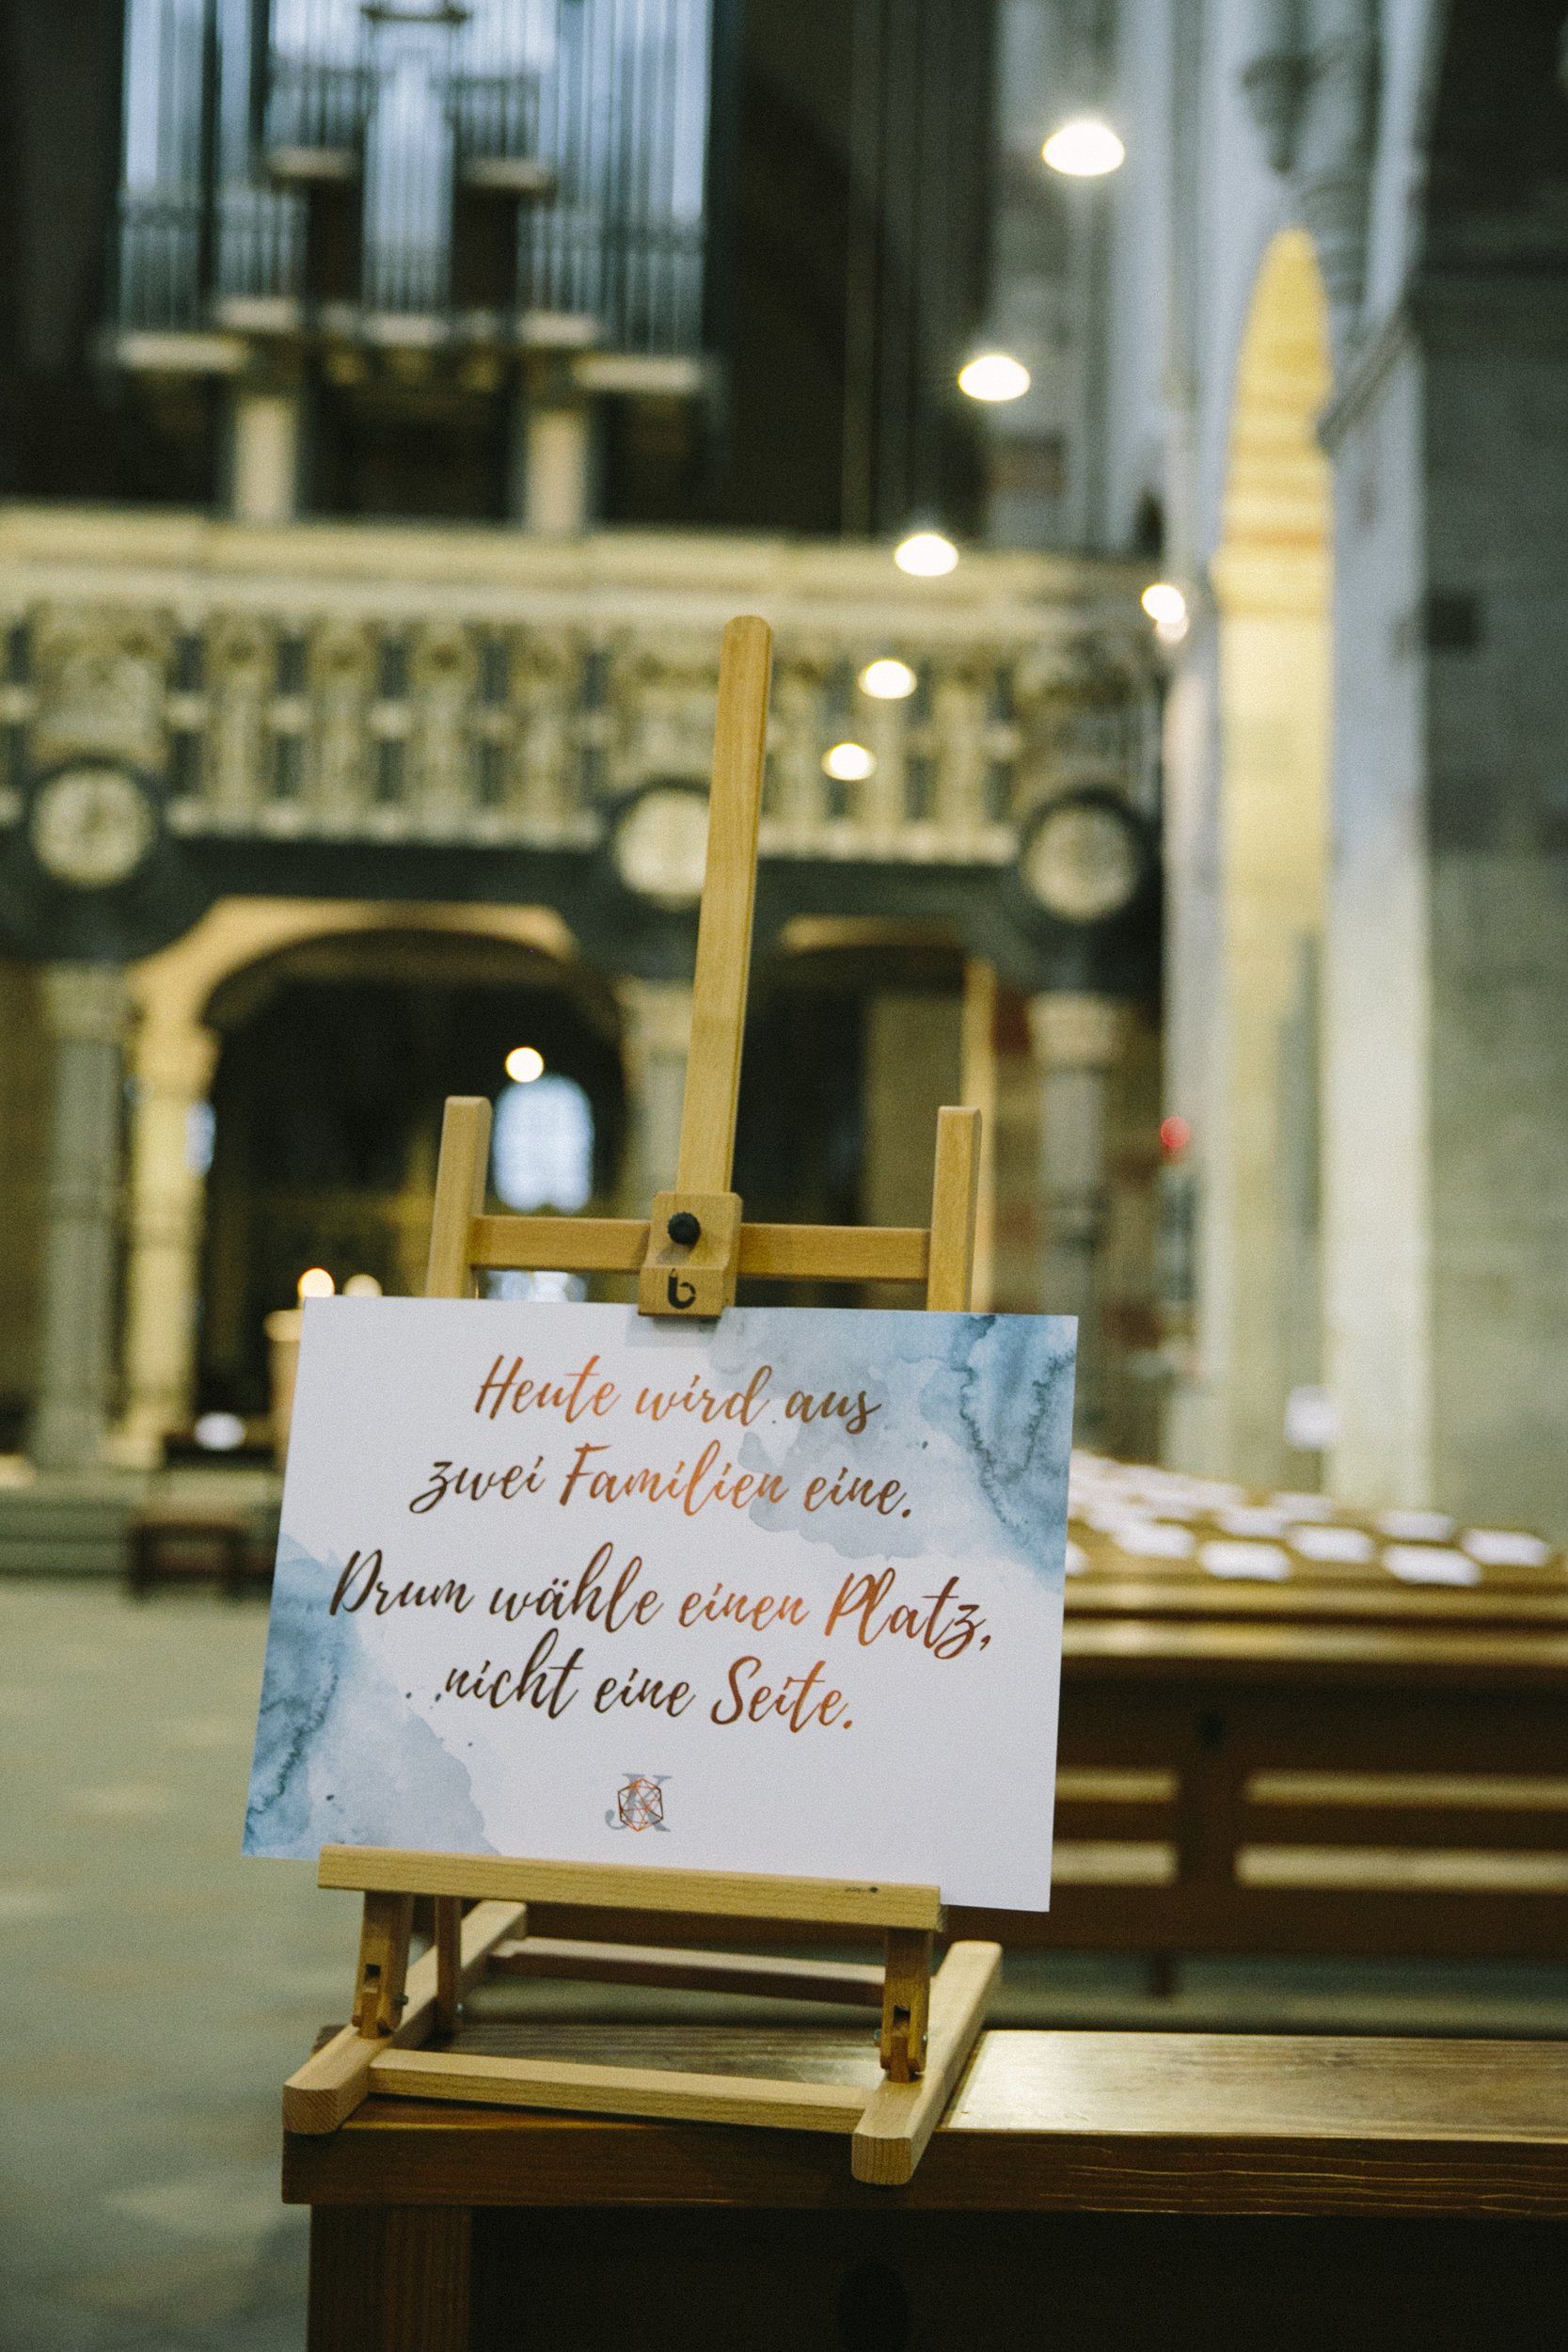 b
Heute wird aus
zwei Familien eine.
Drum wähle einen Platz,
nicht eine Seite.
JK